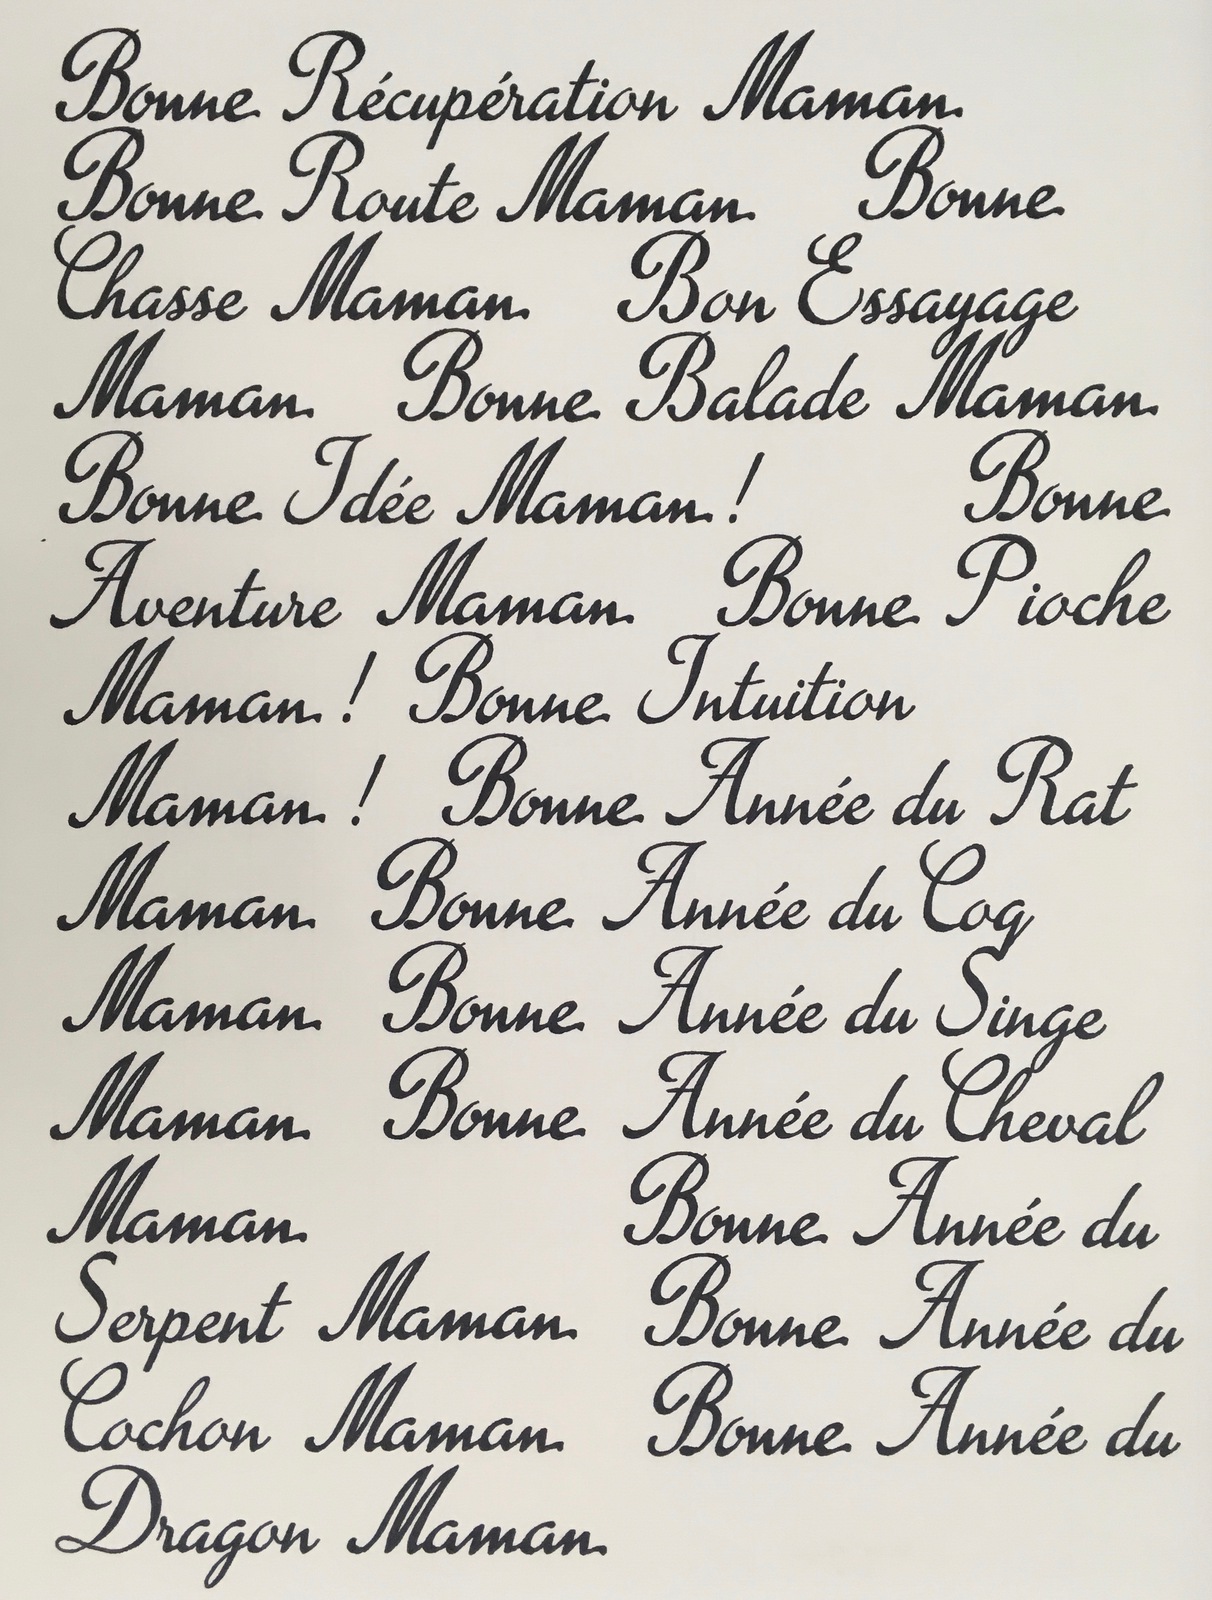 Bonne Récupération Maman
Bonne Route Maman Bonne
Chasse Maman Bon Essayage
Maman Bonne Balade Maman
Bonne Idée Maman ! Bonne
Aventure Maman Bonne Pioche
Maman ! Bonne Intuition
Maman ! Bonne Année du Rat
Maman Bonne Année du Coq
Maman Bonne Année du Singe
Maman Bonne Année du Cheval
Maman Bonne Année du
Serpent Maman Bonne Année du
Cochon Maman Bonne Année du
Dragon Maman